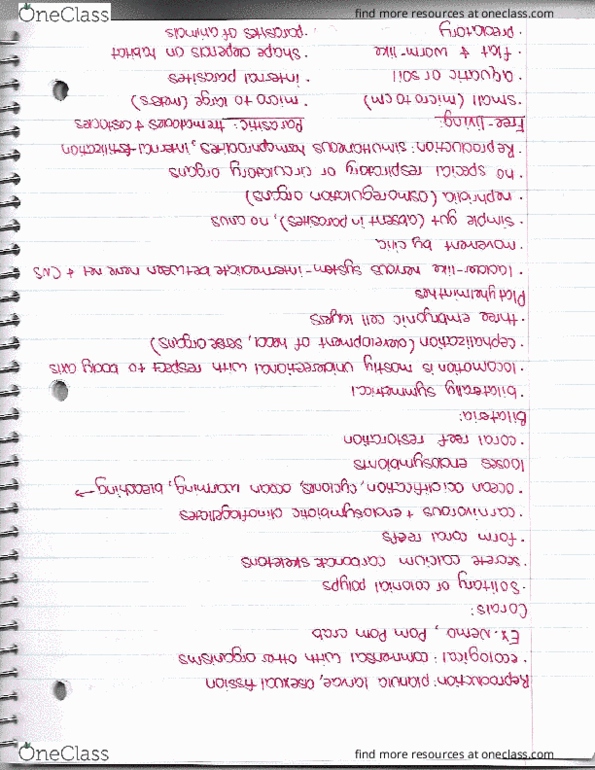 OneClass
find more resources at oneclass.com
Reproduction: planula larvae, asexual fission
· ecological: commensal with other organisms
EX. Nemo, Pom Pom crab
Corals:
· Solitary or colonial polyps
· secrete calcium carbonate skeletons
· form coral reefs
· carnivorous + endosymbiotic dinoflagellates
· ocean acidification, cyclones, ocean warming, bleaching →
looses endosymbionts
· coral reef restoration
Bilateria:
· bilaterally symmetrical
· locomotion is mostly unidirectional with respect to body axis
· cephalization (development of head, sense organs)
· three embryonic cell layers
Platyhelminthes
· ladder-like nervous system - intermediate between net nerve + CNS
· movement by cilia
· simple gut (absent in parasites), no anus
· nephridia (osmoregulation organs)
· no special respiratory or circulatory organs
· Reproduction: simultaneous hemaphrodites, internal fertilization
Free-living:
· small (micro to cm)
· aquatic or soil
· flat + worm-like
· predatory
Parasitic: trematodes + cestodes
· micro to large (meters)
· internal parasites
· shape depends on habitat
· parasites of animals
OneClass
find more resources at oneclass.com